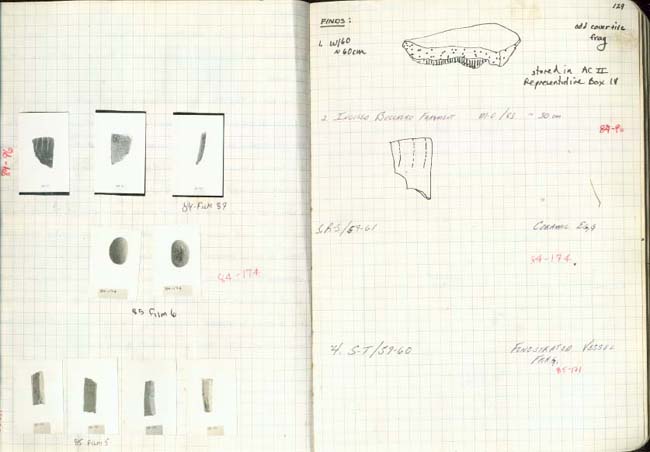 84-96
84-Film 37
84-174
85 Film 6
85 Film 5
129
FINDS:
1. W/60
≈ 60cm
odd cover tile
frag
stored in AC II
Representative Box 18
2. Incised Bucchero Fragment
- 30 cm
84-96
S.R-S/59-61
Ceramic Egg
84-174
4. S-T/59-60
Fenestrated Vessel
Frag.
85-171